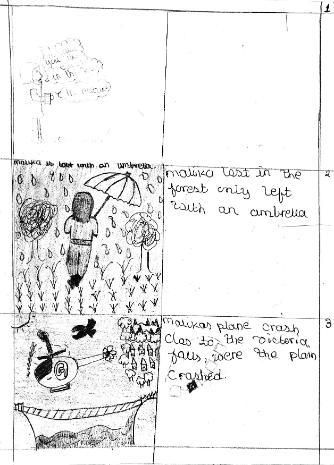 1
malika is lost with an umbrella.
malika lost in the
forest only left
with an umbrella
2
malikas plane crash
clos to the victoria
falls, were the plain
crashed.
3